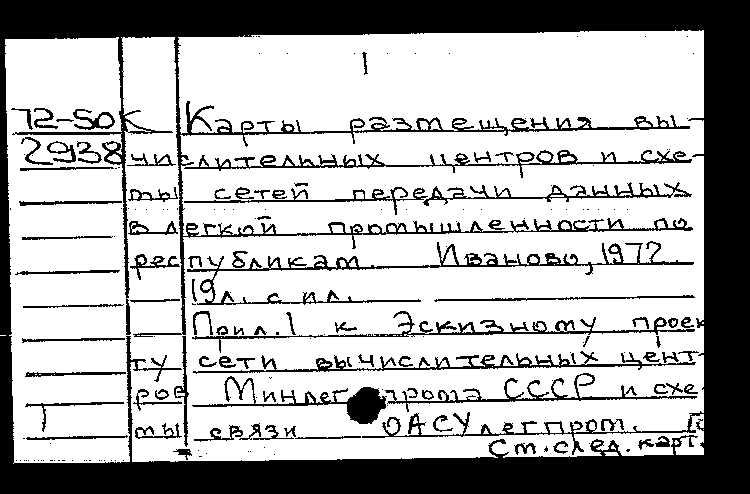 1
72-50К Карты размещения вы-
2938 числительных центров и схе-
мы сетей передачи данных
в легкой промышленности по
республикам. Иваново, 1972.
19л. с ил.
Прил. 1 к Эскизному проек
ту сети вычислительных цент-
ров Минлегпрома СССР и схе-
1 мы связи ОАСУлегпром.
См. след. карт.